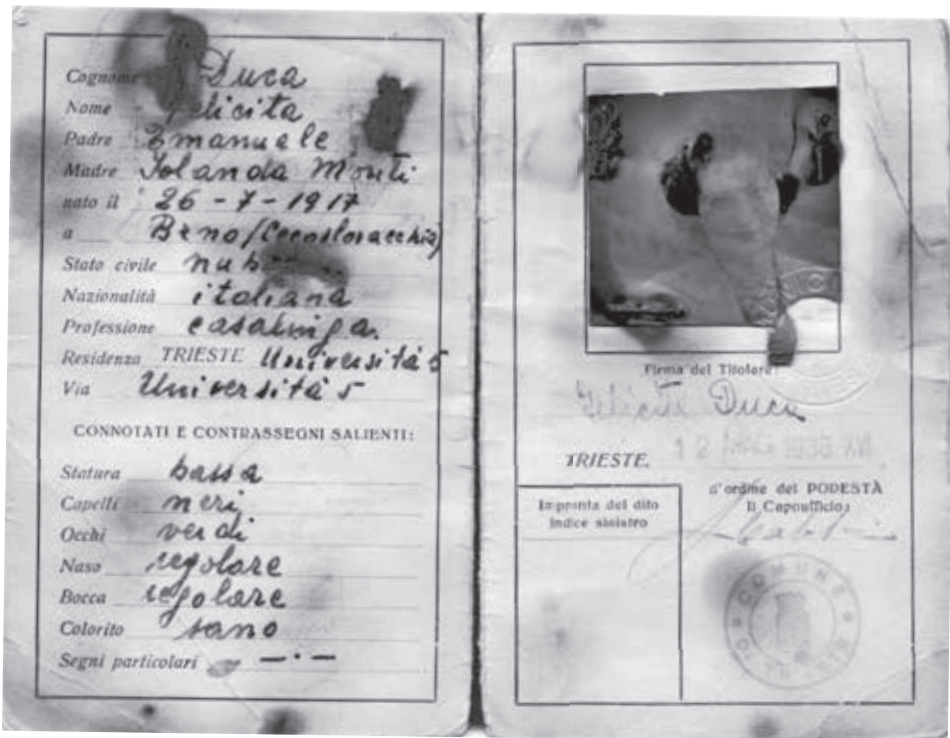 Cognome Duca
Nome Felicita
Padre Emanuele
Madre Jolanda Monti
nato il 26-7-1917
a Brno (Cecoslovacchia)
Stato civile nub
Nazionalità italiana
Professione casalinga.
Residenza TRIESTE Università 5
Via Università 5
CONNOTATI E CONTRASSEGNI SALIENTI:
Statura bassa
Capelli neri
Occhi verdi
Naso regolare
Bocca regolare
Colorito sano
Segni particolari — · —
Firma del Titolare
Duca
TRIESTE, 12 XVI
Impronta del dito
indice sinistro
d'ordine del PODESTÀ
Il Capoufficio:
COMUNE